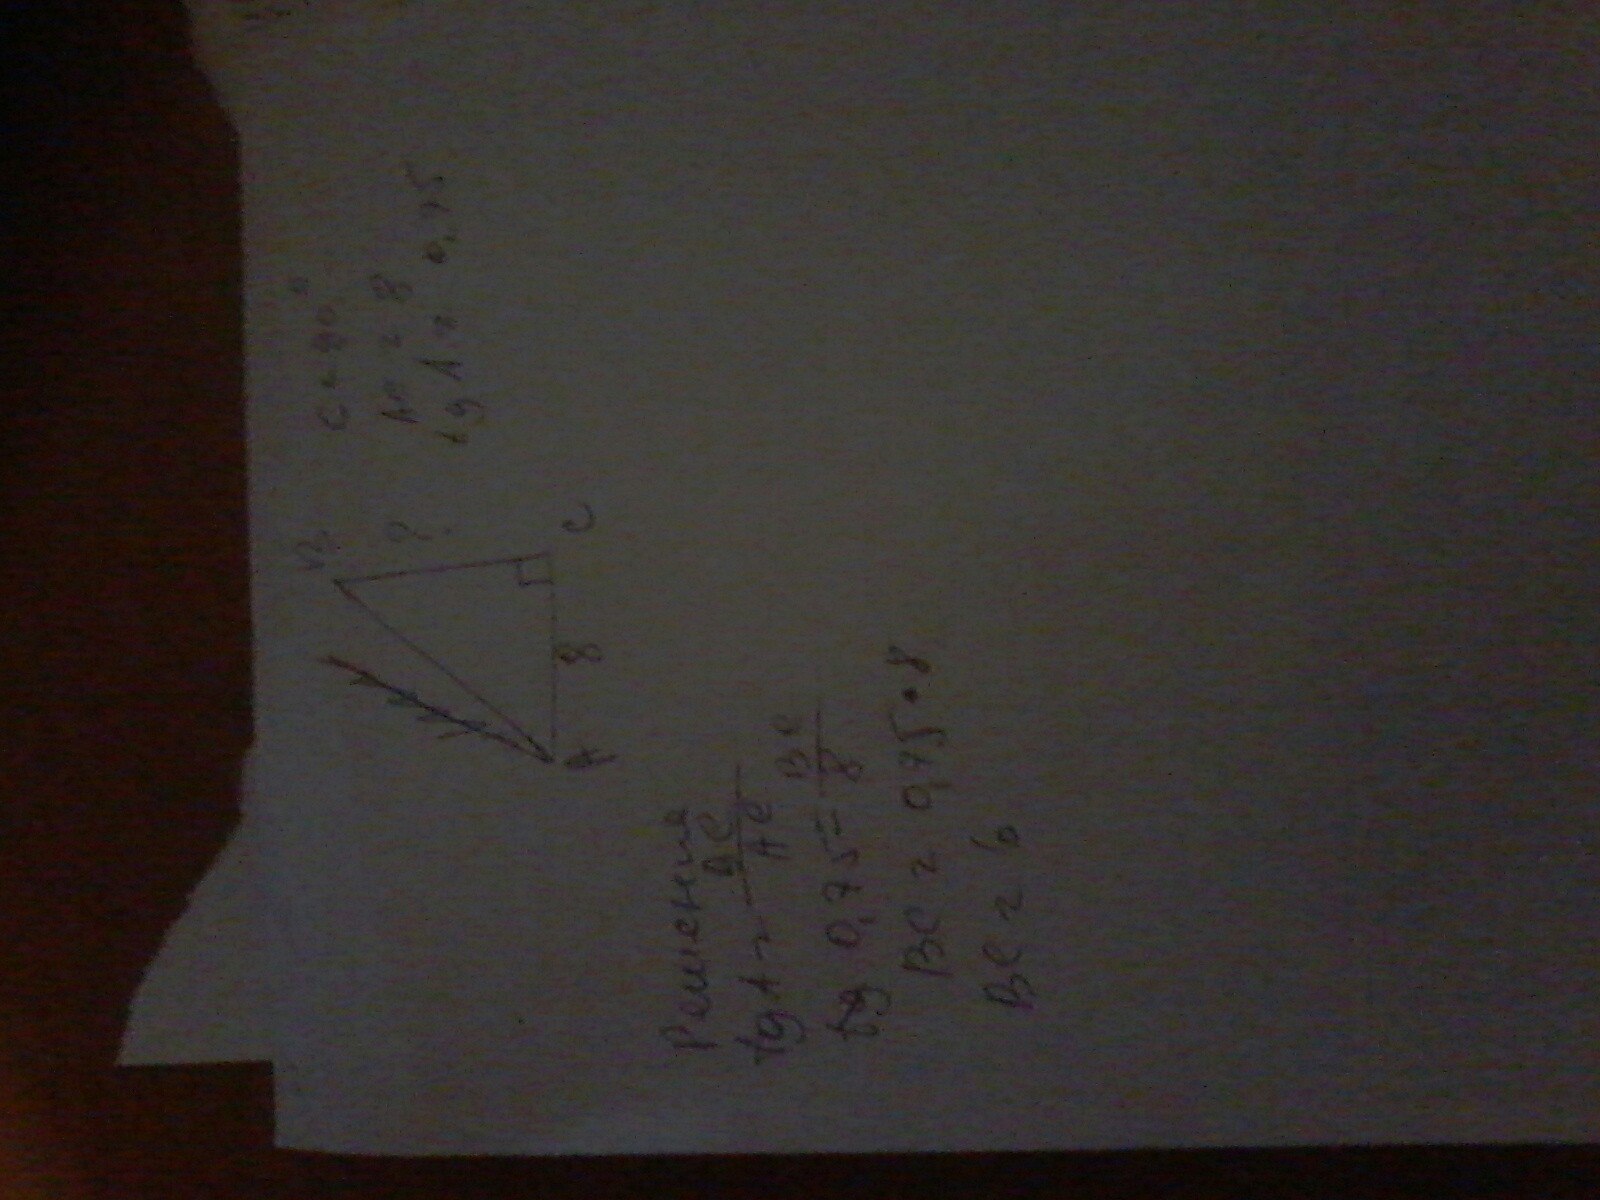 B
C = 90°
?
AC = 8
tg A = 0,75
C
8
A
Решения
tg A = BC/AC
tg 0,75 = BC/8
BC = 0,75 • 8
BC = 6